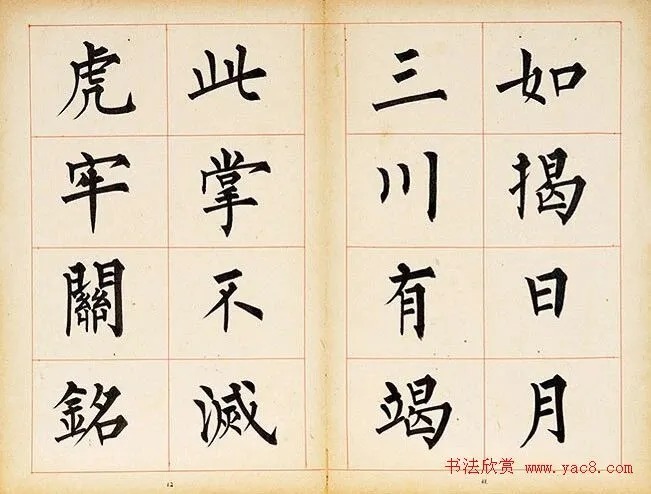 如揭日月
三川有竭
此掌不滅
虎牢關銘
12
11
书法欣赏 www.yac8.com